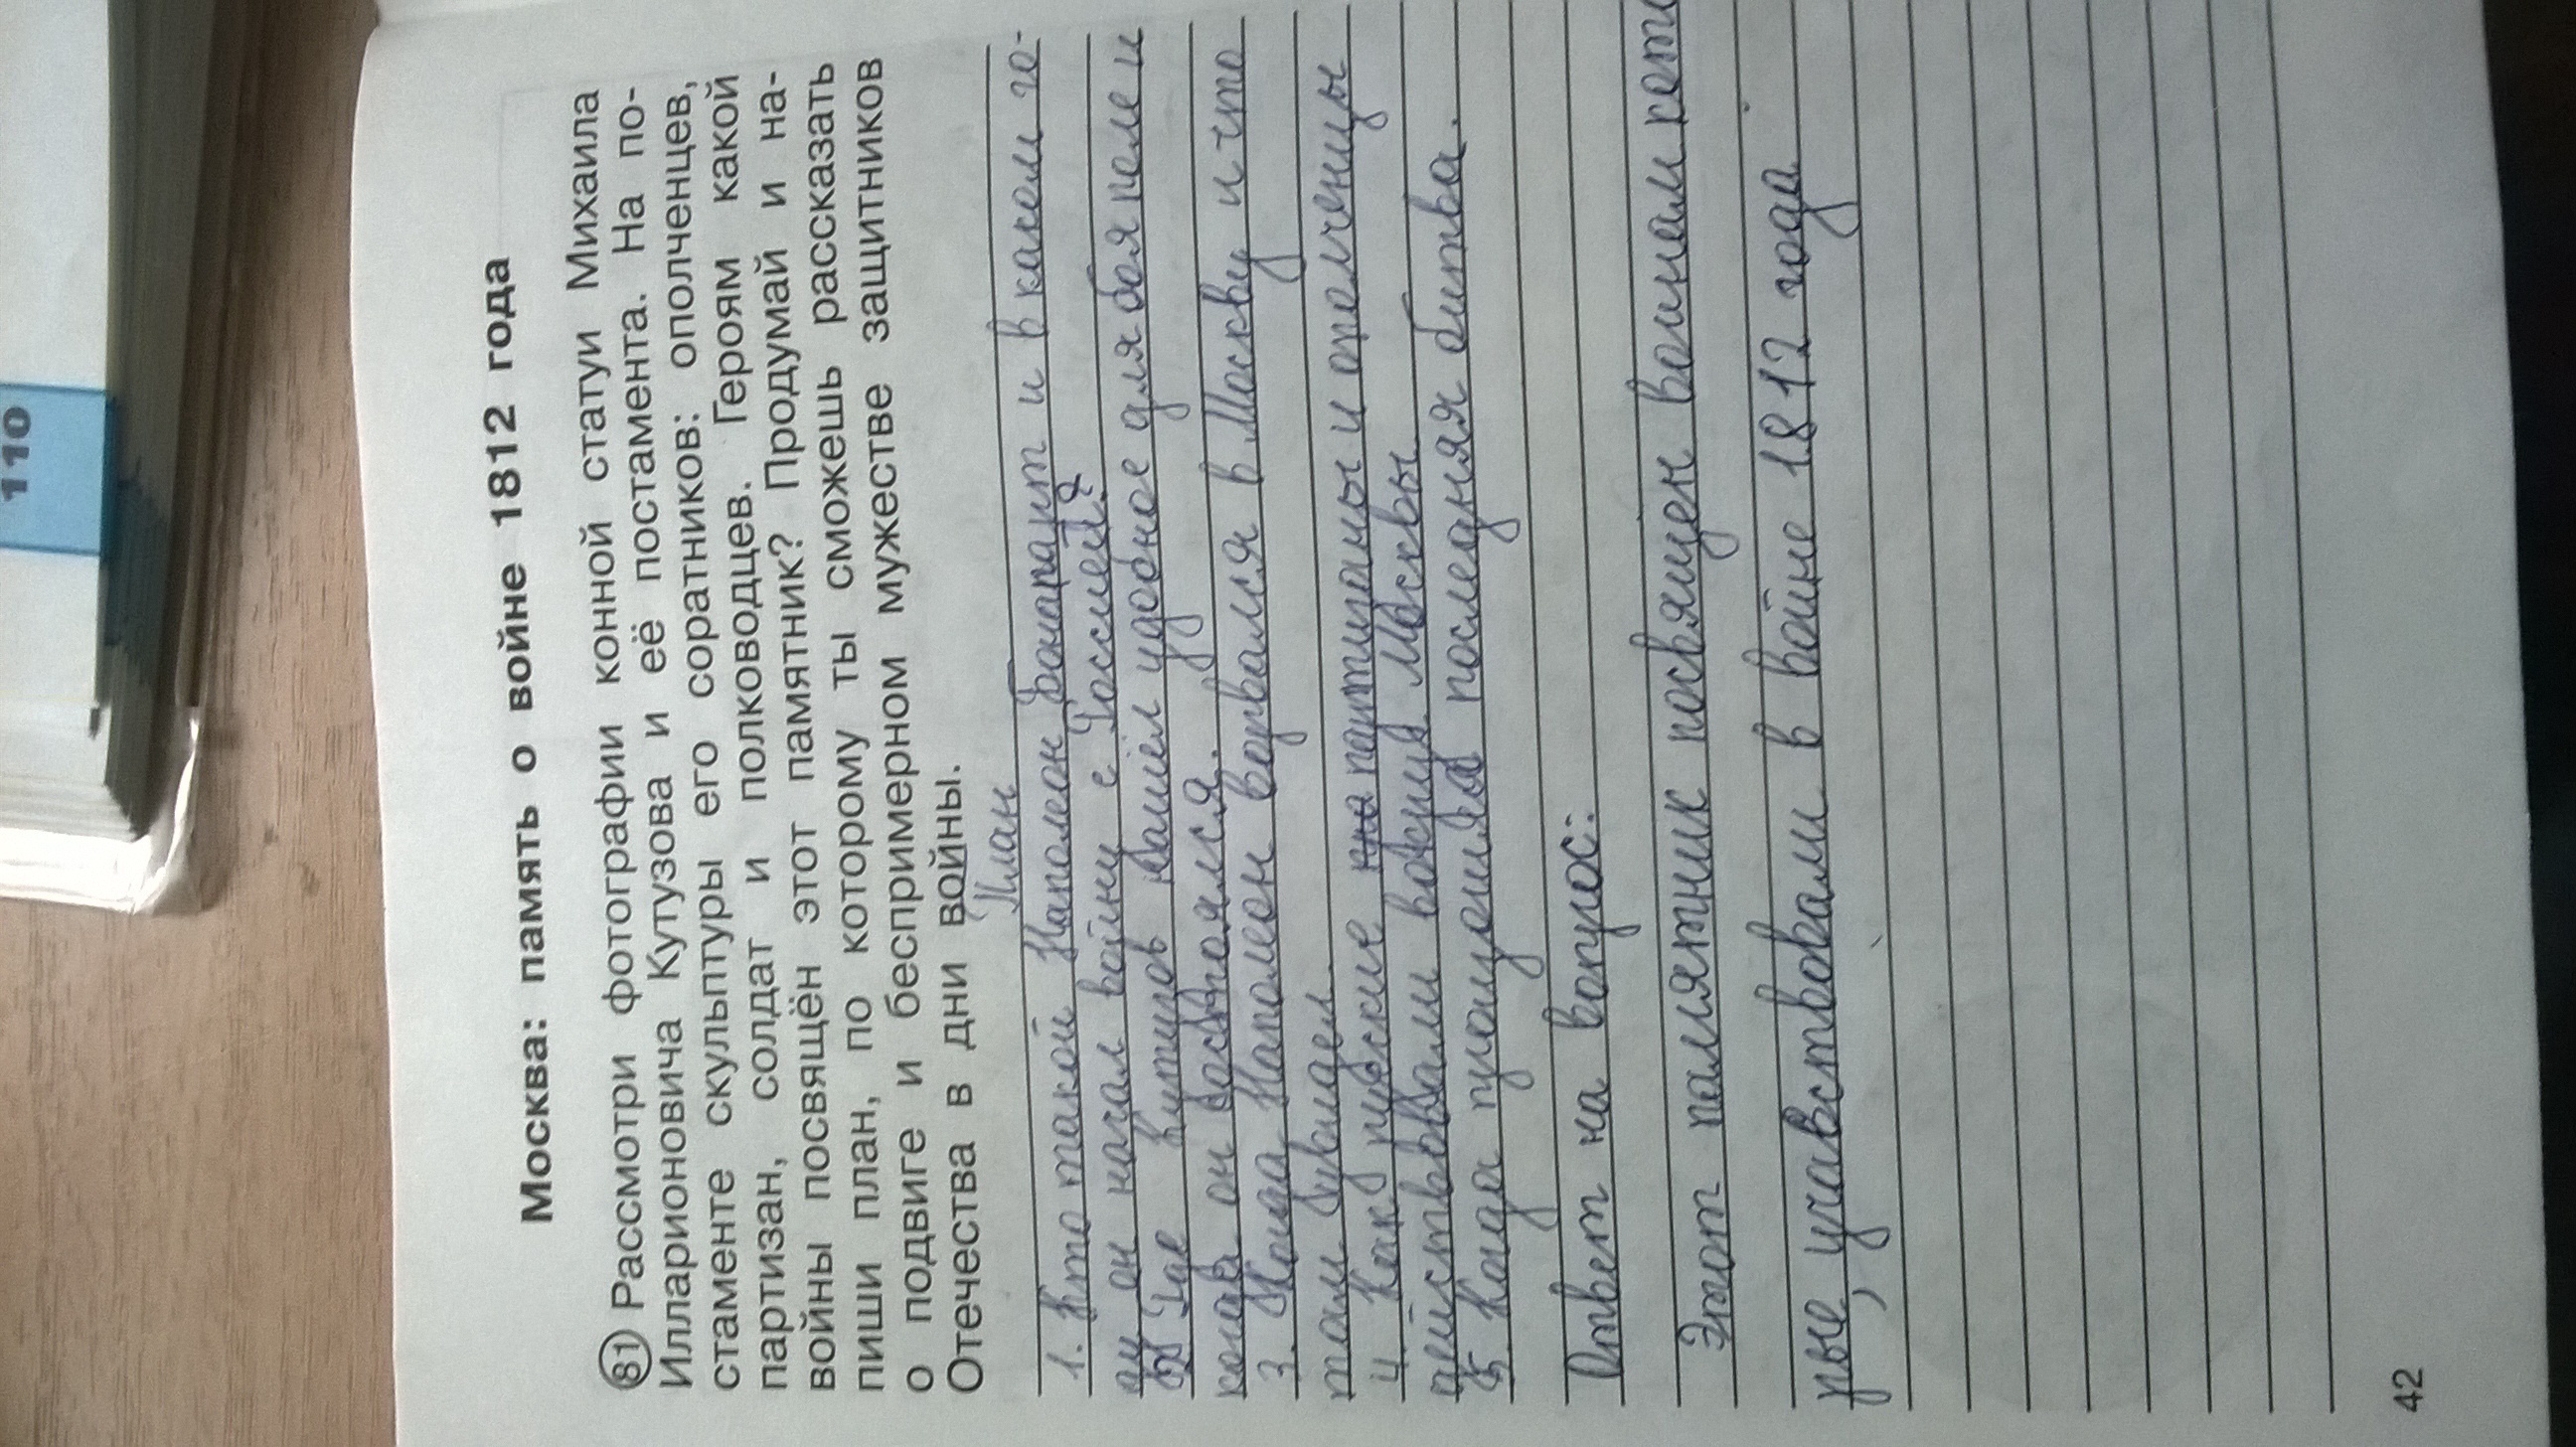 110
Москва: память о войне 1812 года
81 Рассмотри фотографии конной статуи Михаила
Илларионовича Кутузова и её постамента. На по-
стаменте скульптуры его соратников: ополченцев,
партизан, солдат и полководцев. Героям какой
войны посвящён этот памятник? Продумай и на-
пиши план, по которому ты сможешь рассказать
о подвиге и беспримерном мужестве защитников
Отечества в дни войны.
План
1. Кто такой Наполеон Бонапарт и в каком го-
ду он начал войну с Россией?
2 Где Кутузов нашёл удобное для боя поле и
когда он состоялся.
3. Когда Наполеон ворвался в Москву и что
там увидел.
4. Как русские партизаны и ополченцы
действовали вокруг Москвы.
5. Когда произошла последняя битва.
Ответ на вопрос:
Этот памятник посвящен воинам кото
рые, учавствовали в войне 1812 года
42